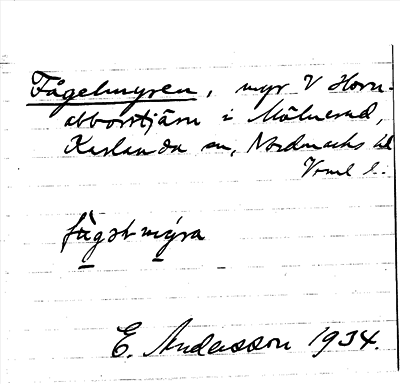 Fågelmyren, myr V Horn-
abborrtjärn i Mölnerud,
Karlanda sn, Nordmarks hd
Vrml l.
fùgəl mýra
E. Andersson 1934.